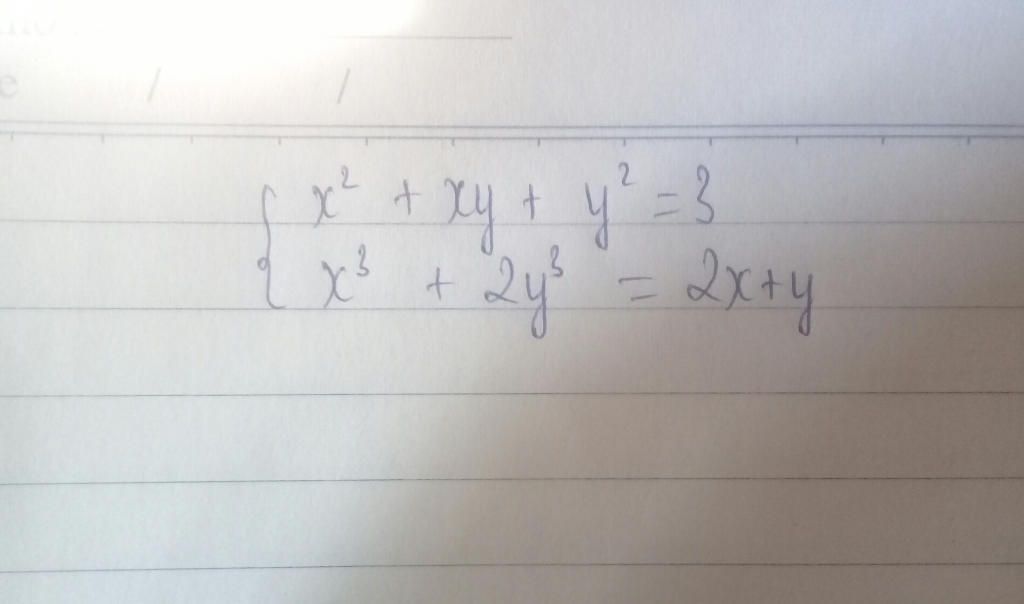 x² + xy + y² = 3
x³ + 2y³ = 2x+y